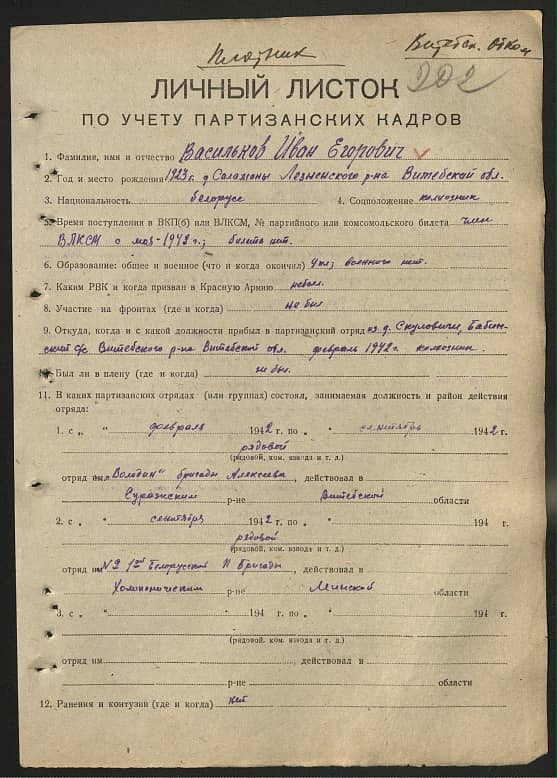 Плотник
Витебск. обком
202
ЛИЧНЫЙ ЛИСТОК
ПО УЧЕТУ ПАРТИЗАНСКИХ КАДРОВ
1. Фамилия, имя и отчество Васильков Иван Егорович
2. Год и место рождения 1923 г. д. Лезненского р-на Витебской обл.
3. Национальность белорусс 4. Соцположение колхозник
5. Время поступления в ВКП(б) или ВЛКСМ, № партийного или комсомольского билета член
ВЛКСМ с мая-1942 г.; билета нет.
6. Образование: общее и военное (что и когда окончил) 4 кл; военного нет.
7. Каким РВК и когда призван в Красную Армию
8. Участие на фронтах (где и когда) не был
9. Откуда, когда и с какой должности прибыл в партизанский отряд из д. Скуловичи, Бабин-
ский с/с Витебского р-на Витебской обл. февраль 1942 г. колхозник.
10. Был ли в плену (где и когда) не был.
11. В каких партизанских отрядах (или группах) состоял, занимаемая должность и район действия
отряда:
1. с „ “ февраля 1942 г. по „ “ сентябрь 1942 г.
рядовой
(рядовой, ком. взвода и т. д.)
отряд им. „Володин“ бригады Алексеева, действовал в
Суражским р-не Витебской области
2. с „ “ сентября 1942 г. по „ “ 194 г.
рядовой
(рядовой, ком. взводь и т. д.)
отряд им №2 1ой Белорусской П бригады, действовал в
Холопеническим р-не Минской области
3. с „ “ 194 г. по „ “ 194 г.
(рядовой, ком. взвода и т. д.)
отряд им. , действовал в
р-не области
12. Ранения и контузии (где и когда) нет